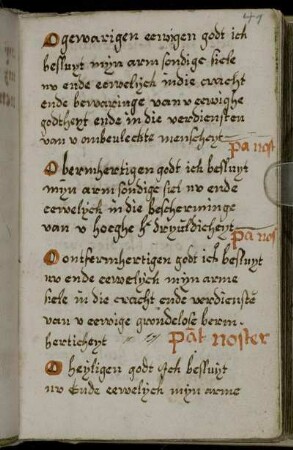 49
O gewarigen eewigen godt ick
besluyt mijn arm sondige siele
nv ende eewelyck in die cracht
ende bewaringe van v eewighe
godtheyt ende in die verdiensten
van v onbeulecte menscheyt
pa nost
O bermhertigen godt ick besluyt
mijn arm sondige siel nv ende
eewelyck in die bescherminge
van v hoeghe h dryvuldicheyt
pa nos
O ontfermhertigen godt ick besluyt
nv ende eewelyck mijn arme
siele in die cracht ende verdienste
van v eewige grondelose berm-
herticheyt pat noster
O heyligen godt ick besluyt
nv Ende eewelyck mijn arme